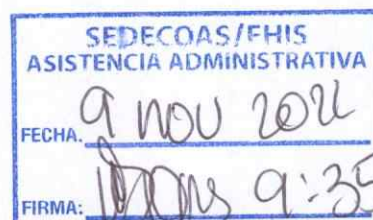 SEDECOAS/FHIS
ASISTENCIA ADMINISTRATIVA
FECHA. 9 nov 2022
FIRMA: 9:35